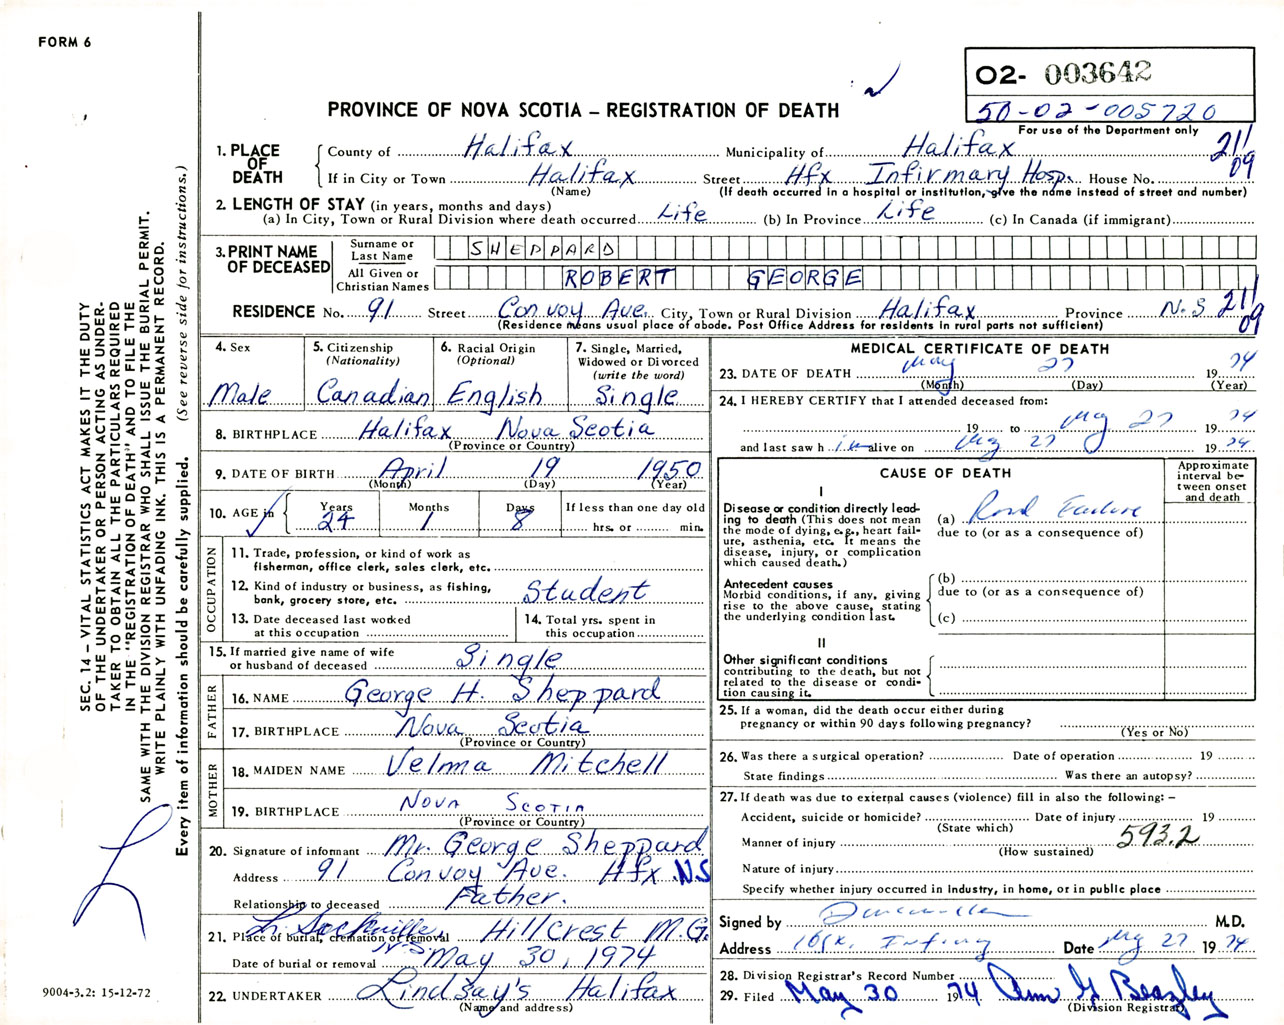 FORM 6
02- 003642
50-02-005720
For use of the Department only
PROVINCE OF NOVA SCOTIA – REGISTRATION OF DEATH
1. PLACE OF DEATH
County of Halifax Municipality of Halifax 21/09
If in City or Town Halifax Street Hfx Infirmary Hosp. House No.
(Name) (If death occurred in a hospital or institution, give the name instead of street and number)
2. LENGTH OF STAY (in years, months and days)
(a) In City, Town or Rural Division where death occurred Life (b) In Province Life (c) In Canada (if immigrant)
3. PRINT NAME OF DECEASED
Surname or Last Name SHEPPARD
All Given or Christian Names ROBERT GEORGE
RESIDENCE No. 91 Street Convoy Ave. City, Town or Rural Division Halifax Province N.S 21/09
(Residence means usual place of abode. Post Office Address for residents in rural parts not sufficient)
4. Sex
Male
5. Citizenship (Nationality)
Canadian
6. Racial Origin (Optional)
English
7. Single, Married, Widowed or Divorced (write the word)
Single
8. BIRTHPLACE Halifax Nova Scotia
(Province or Country)
9. DATE OF BIRTH April 19 1950
(Month) (Day) (Year)
10. AGE in Years 24 Months 1 Days 8 If less than one day old hrs. or min.
OCCUPATION
11. Trade, profession, or kind of work as fisherman, office clerk, sales clerk, etc.
12. Kind of industry or business, as fishing, bank, grocery store, etc. Student
13. Date deceased last worked at this occupation
14. Total yrs. spent in this occupation
15. If married give name of wife or husband of deceased Single
FATHER
16. NAME George H. Sheppard
17. BIRTHPLACE Nova Scotia
(Province or Country)
MOTHER
18. MAIDEN NAME Velma Mitchell
19. BIRTHPLACE Nova Scotia
(Province or Country)
20. Signature of informant Mr. George Sheppard
Address 91 Convoy Ave. Hfx N.S
Relationship to deceased Father.
21. Place of burial, cremation or removal L. Sackville N-S Hillcrest M.G.
Date of burial or removal May 30, 1974
22. UNDERTAKER Lindsay's Halifax
(Name and address)
MEDICAL CERTIFICATE OF DEATH
23. DATE OF DEATH May 27 1974
(Month) (Day) (Year)
24. I HEREBY CERTIFY that I attended deceased from:
19 to May 27 1974
and last saw h im alive on May 27 1974
CAUSE OF DEATH
Approximate interval between onset and death
I
Disease or condition directly leading to death (This does not mean the mode of dying, e.g., heart failure, asthenia, etc. It means the disease, injury, or complication which caused death.)
(a) Renal Failure
due to (or as a consequence of)
Antecedent causes
Morbid conditions, if any, giving rise to the above cause, stating the underlying condition last.
(b)
due to (or as a consequence of)
(c)
II
Other significant conditions
contributing to the death, but not related to the disease or condition causing it.
25. If a woman, did the death occur either during pregnancy or within 90 days following pregnancy?
(Yes or No)
26. Was there a surgical operation? Date of operation 19
State findings Was there an autopsy?
27. If death was due to external causes (violence) fill in also the following: –
Accident, suicide or homicide? Date of injury 19
(State which)
Manner of injury 593.2
(How sustained)
Nature of injury
Specify whether injury occurred in Industry, in home, or in public place
Signed by M.D.
Address Hfx. Infirmary Date May 27 1974
28. Division Registrar's Record Number
29. Filed May 30 1974 Ann G Beazley
(Division Registrar)
SEC. 14 – VITAL STATISTICS ACT MAKES IT THE DUTY
OF THE UNDERTAKER OR PERSON ACTING AS UNDER-
TAKER TO OBTAIN ALL THE PARTICULARS REQUIRED
IN THE "REGISTRATION OF DEATH" AND TO FILE THE
SAME WITH THE DIVISION REGISTRAR WHO SHALL ISSUE THE BURIAL PERMIT.
WRITE PLAINLY WITH UNFADING INK. THIS IS A PERMANENT RECORD.
Every item of information should be carefully supplied. (See reverse side for instructions.)
9004-3.2: 15-12-72